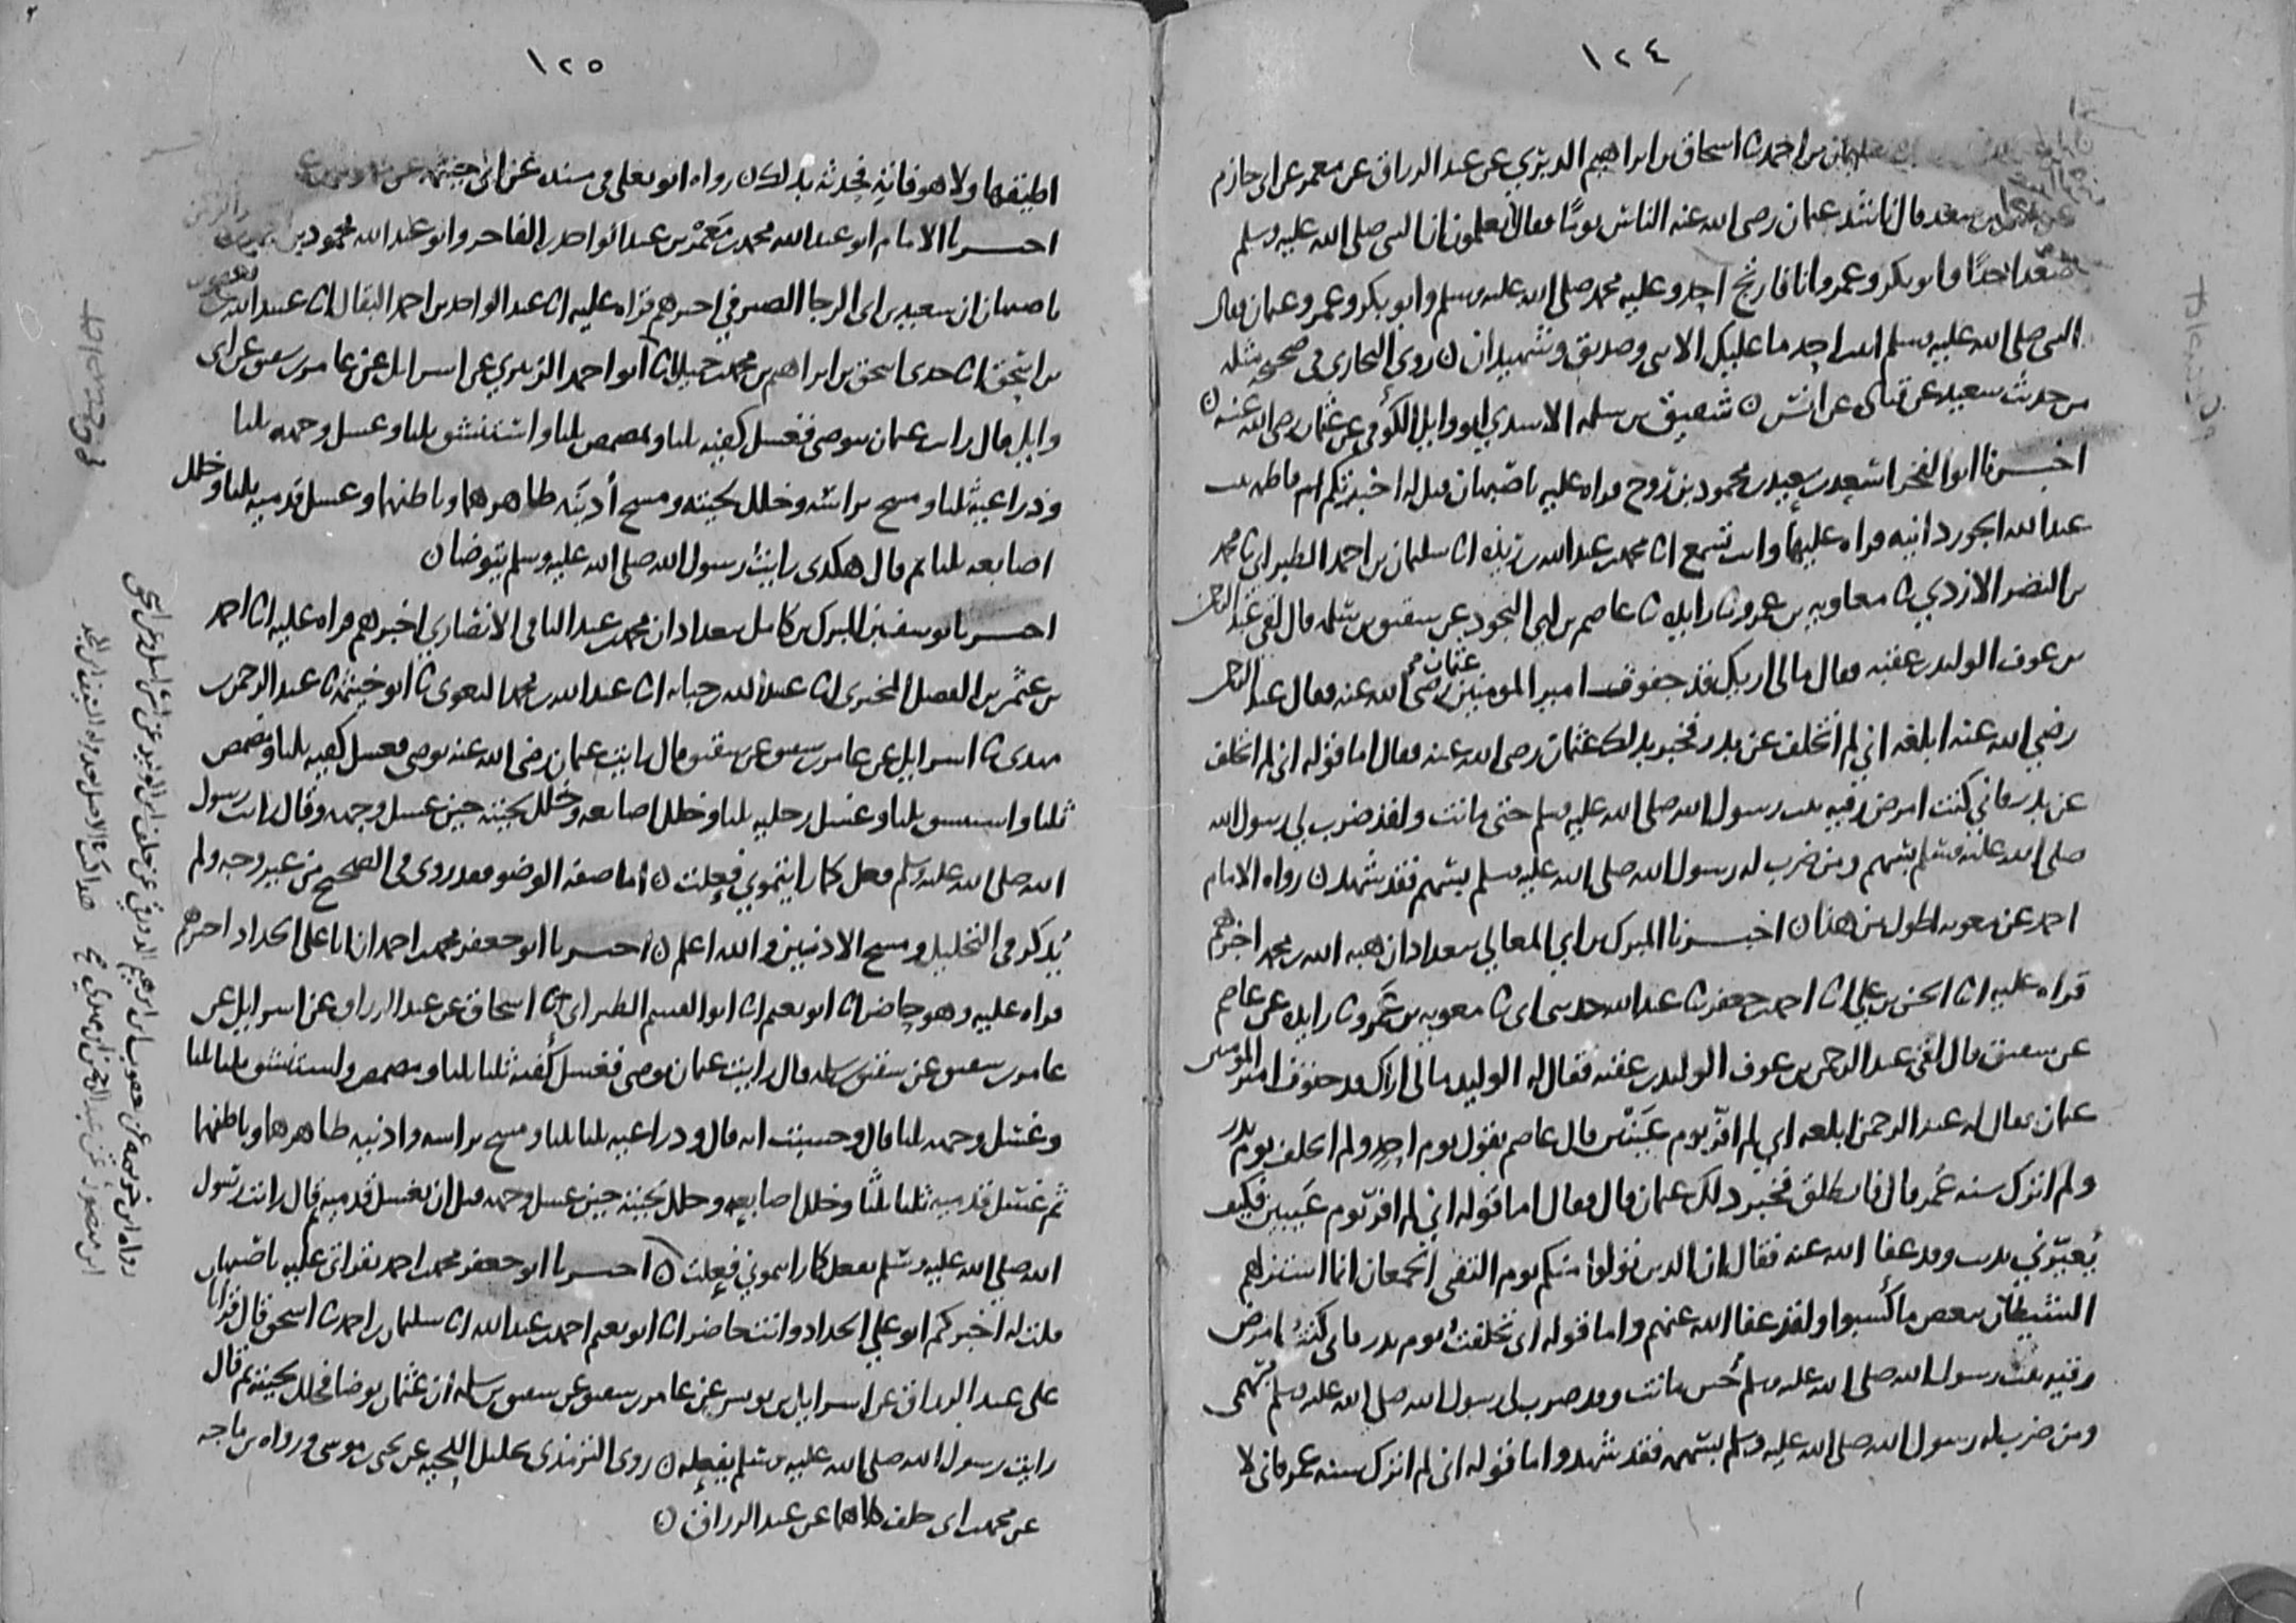 ١٢٤
سليمان بن احمد ثنا اسحاق بن ابراهيم الدبري عن عبد الرزاق عن معمر عن ابي حازم
عن سهل بن سعد قال ناشد عثمان رضي الله عنه الناس يومًا فقال أتعلمون ان النبي صلى الله عليه وسلم
صعد احدًا وابو بكر وعمر وانا فارتج احد وعليه محمد صلى الله عليه وسلم وابو بكر وعمر وعثمان فقال
النبي صلى الله عليه وسلم اثبت احد ما عليك الا نبي وصديق وشهيدان ن روى البخاري في صحيحه مثله
من حديث سعيد عن قتادة عن انس ن شقيق بن سلمة الاسدي ابو وايل الكوفي عن عثمان رضي الله عنه ن
اخبرنا ابو الفخر اسعد بن سعيد بن محمود بن روح قراه عليه باصبهان قيل له اخبرتكم ام فاطمه بنت
عبد الله الجوزدانيه قراه عليها وانت تسمع انا محمد بن عبد الله بن ريذه انا سليمان بن احمد الطبراني ثنا محمد
بن النضر الازدي ثنا معاويه بن عمرو ثنا زايدة ثنا عاصم بن ابي النجود عن شقيق بن سلمه قال لقي عبد الرحمن
بن عوف الوليد بن عقبه فقال مالي اريك قد جفوت امير المومنين عثمان رضي الله عنه فقال عبد الرحمن
رضي الله عنه ابلغه اني لم اتخلف عن بدر فخبر بذلك عثمان رضي الله عنه فقال اما قوله اني لم اتخلف
عن بدر فاني كنت امرض رقيه بنت رسول الله صلى الله عليه وسلم حتى ماتت ولقد ضرب لي رسول الله
صلى الله عليه وسلم بسهم ومن ضرب له رسول الله صلى الله عليه وسلم بسهم فقد شهد ن رواه الامام
احمد عن معويه اطول من هذا ن اخبرنا المبرك بن ابي المعالي ببغداد ان هبه الله بن محمد اخبرهم
قراه عليه انا الحسن بن علي انا احمد بن جعفر ثنا عبد الله حدثني ابي ثنا معويه بن عمرو ثنا زايده عن عاصم
عن شقيق قال لقي عبد الرحمن بن عوف الوليد بن عقبه فقال له الوليد مالي اراك قد جفوت امير المومنين
عثمان فقال له عبد الرحمن ابلغه اني لم افر يوم عينين قال عاصم يقول يوم احد ولم اتخلف يوم بدر
ولم اترك سنه عمر قال فانطلق فخبر ذلك عثمان قال فقال اما قوله اني لم افر يوم عينين فكيف
يعيرني بذنب وقد عفا الله عنه فقال ان الذين تولوا منكم يوم التقى الجمعان انما استزلهم
الشيطان ببعض ما كسبوا ولقد عفا الله عنهم واما قوله اني تخلفت يوم بدر فاني كنت امرض
رقيه بنت رسول الله صلى الله عليه وسلم حين ماتت وقد ضرب لي رسول الله صلى الله عليه وسلم بسهمي
ومن ضرب له رسول الله صلى الله عليه وسلم بسهمه فقد شهد واما قوله اني لم اترك سنه عمر فاني لا
١٢٥
اطيقها ولا هو فاتِهِ فحدثه بذلك ن رواه ابو يعلى في مسنده عن ابي خيثمه عن
اخبرنا الامام ابو عبد الله محمد بن معمر بن عبد الواحد بن الفاخر وابو عبد الله محمود بن
باصبهان ان سعيد بن ابي الرجا الصيرفي اخبرهم قراه عليه انا عبد الواحد بن احمد البقال انا عبيد الله بن يعقوب
بن اسحق انا جدي اسحق بن ابراهيم بن محمد بن جميل انا ابو احمد الزبيري عن اسرايل عن عامر بن شقيق عن ابي
وايل قال رايت عثمان يتوضى فغسل كفيه ثلثا ومضمض ثلثا واستنشق ثلثا وغسل وجهه ثلثا
وذراعيه ثلثا ومسح براسه وخلل لحيته ومسح أذنيه ظاهرهما وباطنهما وغسل قدميه ثلثا وخلل
اصابعه ثلثا ثم قال هكذى رايت رسول الله صلى الله عليه وسلم يتوضا ن
اخبرنا يوسف بن المبرك بن كامل ببغداد ان محمد بن عبد الباقي الانصاري اخبرهم قراه عليه انا احمد
بن عثمن بن الفضل المخبزى انا عبيد الله بن حبابه انا عبد الله بن محمد البغوي ثنا ابو خيثمة ثنا عبد الرحمن بن
مهدي ثنا اسرايل عن عامر بن شقيق عن شقيق قال رايت عثمان رضي الله عنه توضى فغسل كفيه ثلثا ومضمض
ثلثا واستنشق ثلثا وغسل رجليه ثلثا وخلل اصابعه وخلل لحيته حين غسل وجهه وقال رايت رسول
الله صلى الله عليه وسلم فعل كما رايتموني فعلت ن أما صفه الوضو فقد روى في الصحيح من غير وجه ولم
يُذكر في التخليل ومسح الاذنين والله اعلم ن اخبرنا ابو جعفر محمد بن احمد ان ابا علي الحداد اخبرهم
قراه عليه وهو حاضر انا ابو نعيم انا ابو القسم الطبراني ثنا اسحاق عن عبد الرزاق عن اسرايل عن
عامر بن شقيق عن شقيق بن سلمه قال رايت عثمان توضى فغسل كفيه ثلثا ثلثا ومضمض واستنشق ثلثا ثلثا
وغسل وجهه ثلثا قال وحسبت انه قال وذراعيه ثلثا ثلثا ومسح براسه واذنيه ظاهرهما وباطنهما
ثم غسل قدميه ثلثا ثلثا وخلل اصابعه وخلل لحيته حين غسل وجهه قبل ان يغسل قدميه ثم قال رايت رسول
الله صلى الله عليه وسلم يفعل كما رايتموني فعلت ن اخبرنا ابو جعفر محمد بن احمد بقراتي عليه باصبهان
قلت له أخبركم ابو علي الحداد وانت حاضر انا ابو نعيم احمد بن عبد الله انا سليمان بن احمد ثنا اسحق قال قرانا
على عبد الرزاق عن اسرايل بن يونس عن عامر بن شقيق عن شقيق بن سلمه ان عثمان توضا فخلل لحيته ثم قال
رايت رسول الله صلى الله عليه وسلم يفعله ن روى الترمذي تخليل اللحيه عن يحيى بن موسى ورواه بن ماجه
عن محمد بن ابي خلف كلاهما عن عبد الرزاق ن
رواه ابن خزيمه عن يعقوب بن ابرهيم الدورقي عن خلف بن الوليد عن اسرايل وعن اسحق
ابن منصور عن عبد الرحمن بن مهدي